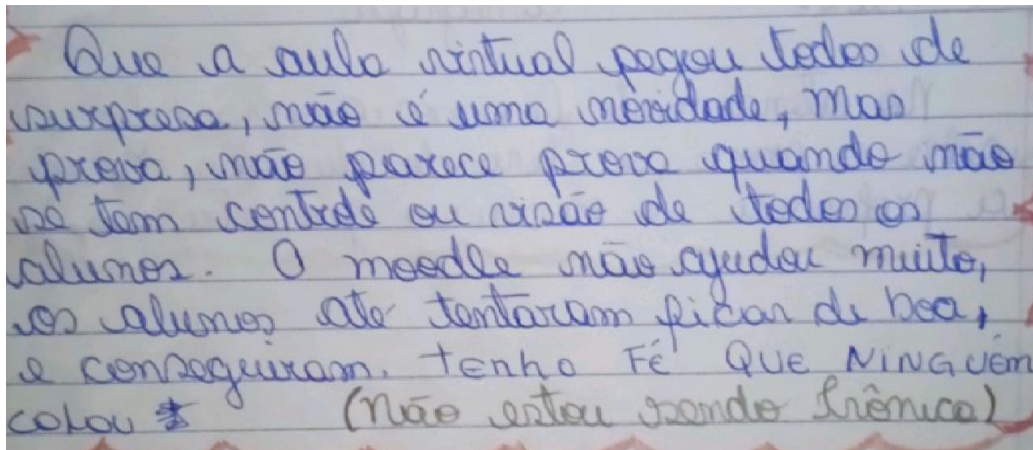 Que a aula virtual pegou todos de
surpresa, não é uma novidade, mas
prova, não parece prova quando não
se tem controle ou visão de todos os
alunos. O moodle não ajudou muito,
os alunos até tentaram ficar de boa,
e conseguiram. Tenho FÉ QUE NINGUÉM
COLOU (não estou sendo irônico)